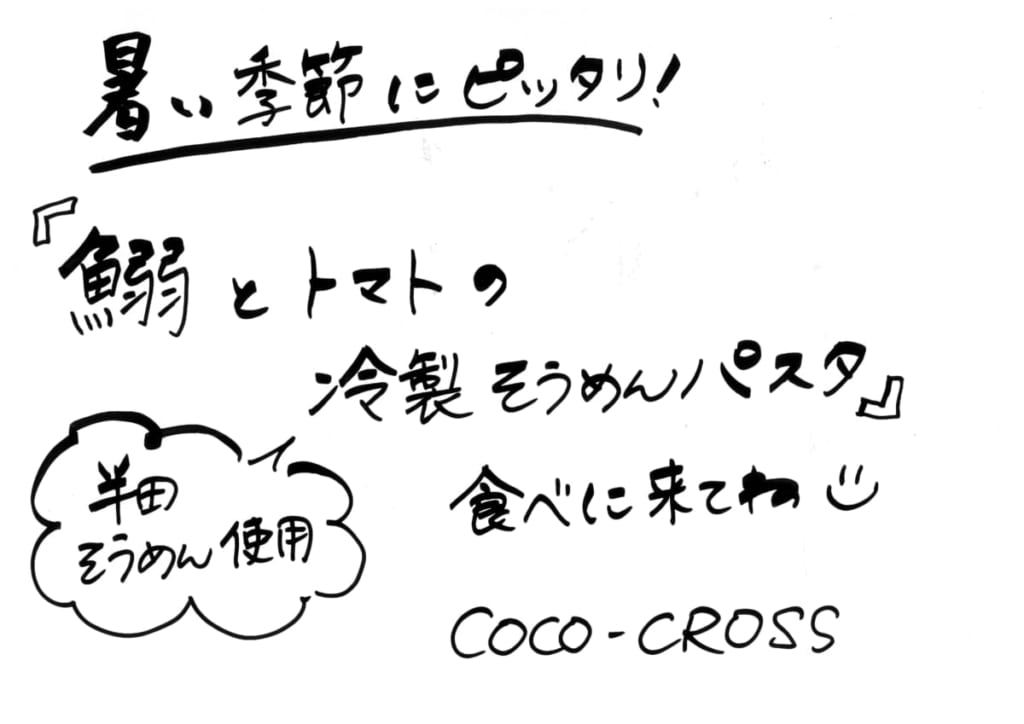 暑い季節にピッタリ!
『鰯とトマトの
冷製そうめんパスタ』
半田
そうめん使用
食べに来てね
COCO-CROSS